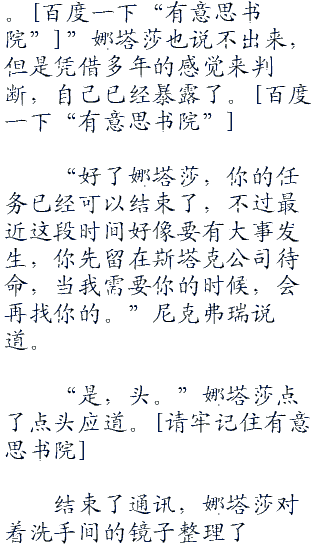 。[百度一下“有意思书
院”]”娜塔莎也说不出来，
但是凭借多年的感觉来判
断，自己已经暴露了。[百度
一下“有意思书院”]
“好了娜塔莎，你的任
务已经可以结束了，不过最
近这段时间好像要有大事发
生，你先留在斯塔克公司待
命，当我需要你的时候，会
再找你的。”尼克弗瑞说
道。
“是，头。”娜塔莎点
了点头应道。[请牢记住有意
思书院]
结束了通讯，娜塔莎对
着洗手间的镜子整理了